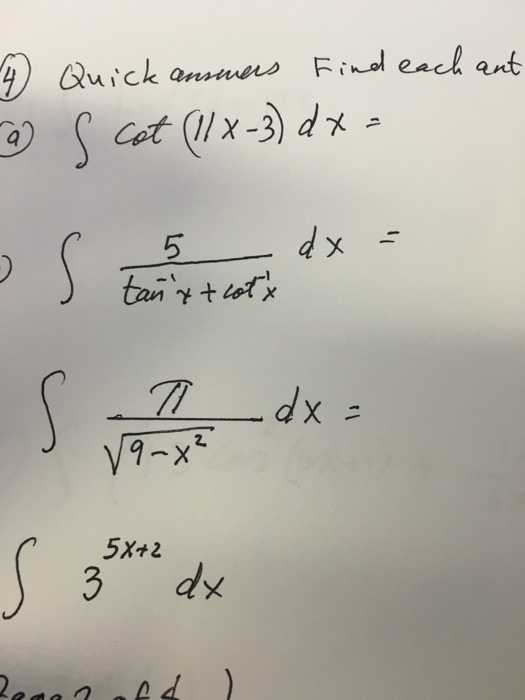 ④ Quick answers Find each ant
(a) ∫ cot (11x-3) dx =
∫ 5/(tan⁻¹x + cot⁻¹x) dx =
∫ π/√(9-x²) dx =
∫ 3^(5x+2) dx
Page 2 of 4 )